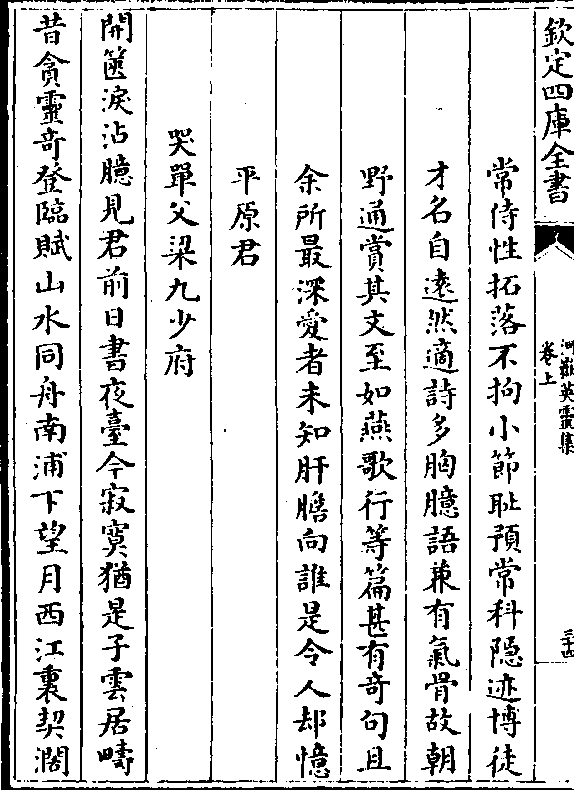 欽定四庫全書
河嶽英靈集
卷上
三十四
常侍性拓落不拘小節耻預常科隠迹博徒
才名自逺然適詩多胸臆語兼有氣骨故朝
野通賞其文至如燕歌行等篇甚有竒句且
余所最深愛者未知肝膽向誰是令人却憶
平原君
哭單父梁九少府
開篋淚沾臆見君前日書夜臺今寂寞猶是子雲居疇
昔貪靈竒登臨賦山水同舟南浦下望月西江裏契濶